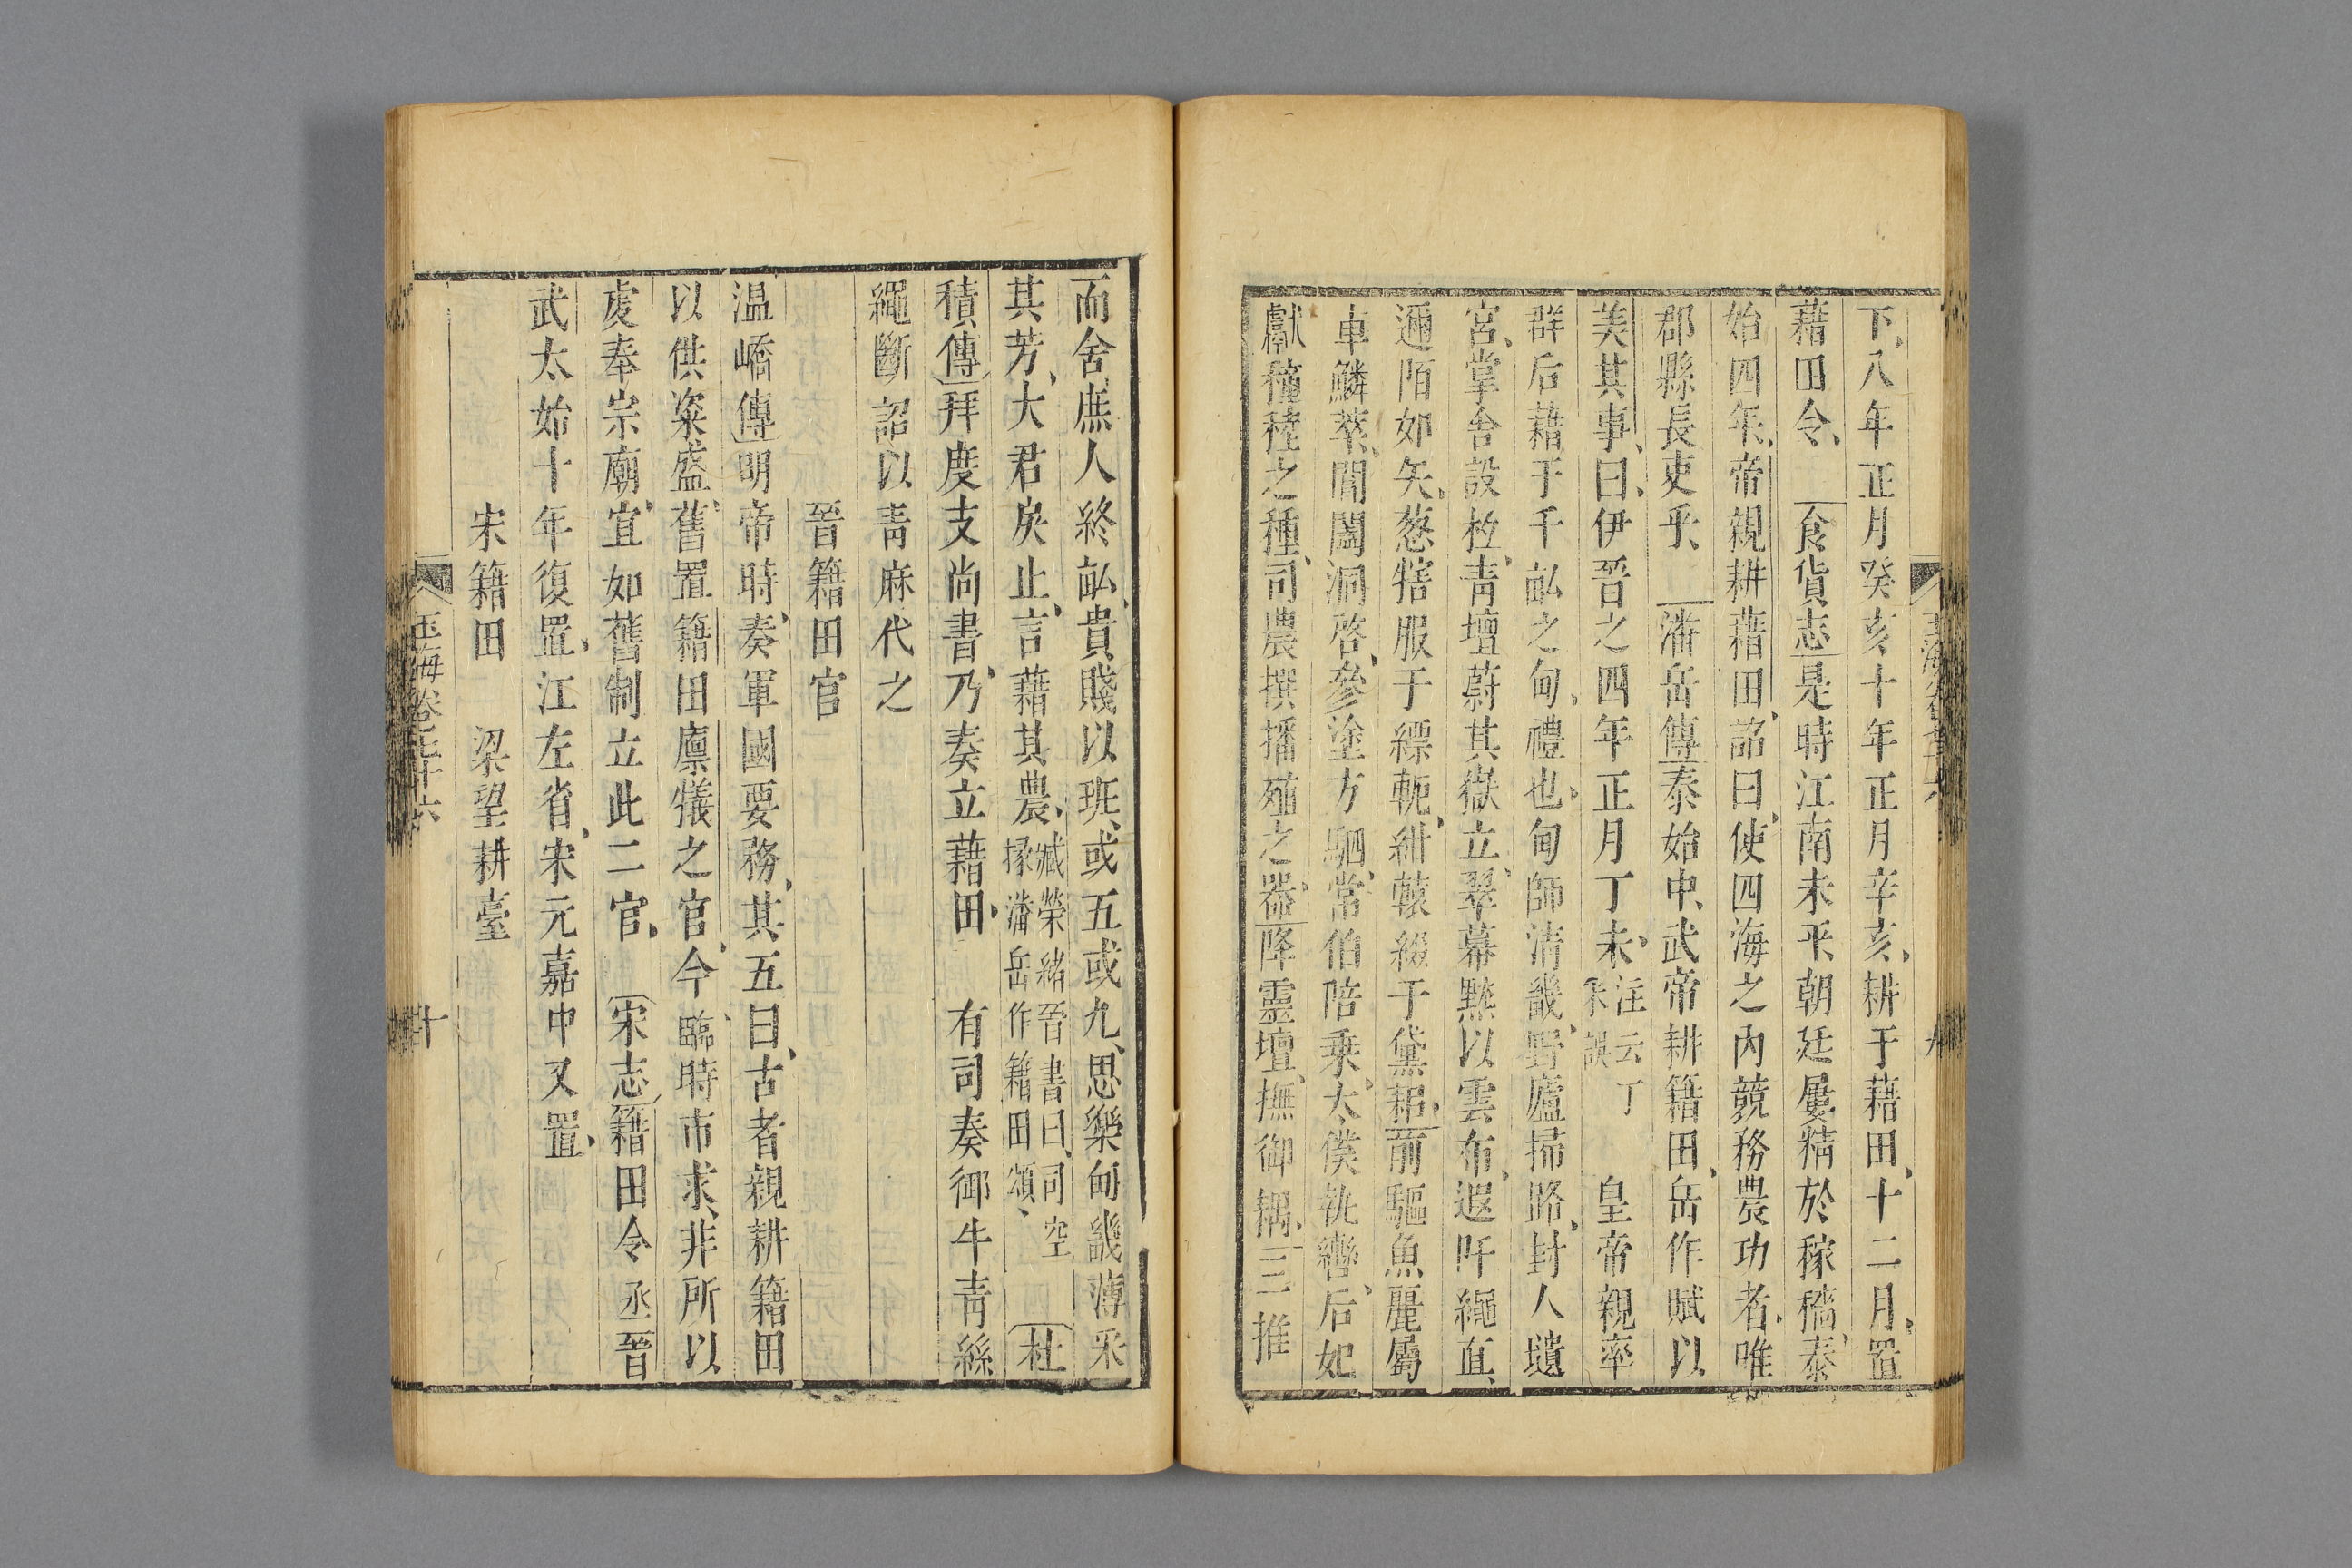 下八年正月癸亥十年正月辛亥耕于藉田十二月置
藉田令　食貨志是時江南未平朝廷屢精於稼穡泰
始四年帝親耕藉田詔曰使四海之内競務農功者唯
郡縣長吏乎　潘岳傳泰始中武帝耕籍田岳作賦以
美其事曰伊晉之四年正月丁未注云丁未誤　皇帝親率
群后藉于千畝之甸禮也甸師清畿野廬掃路封人壝
宮掌舍設枑青壇蔚其嶽立翠幕黕以雲布遐阡繩直
邇陌如矢葱犗服于縹軛紺轅綴于黛耜前驅魚麗屬
車鱗萃閶闔洞啓參塗方駟常伯陪乘太僕執轡后妃
獻穜稑之種司農撰播殖之器降靈壇撫御耦三推
而舍庶人終畝貴賤以班或五或九思樂甸畿薄采
其芳大君戾止言藉其農臧榮緒晉書曰司空掾潘岳作籍田頌　杜
積傳拜度支尚書乃奏立藉田　有司奏御牛青絲
繩斷詔以青麻代之
晉籍田官
温嶠傳明帝時奏軍國要務其五曰古者親耕籍田
以供粢盛舊置籍田廩犧之官今臨時市求非所以
虔奉宗廟宜如舊制立此二官　宋志籍田令丞晉
武太始十年復置江左省宋元嘉中又置
宋籍田　梁望耕臺
玉海卷七十六　十